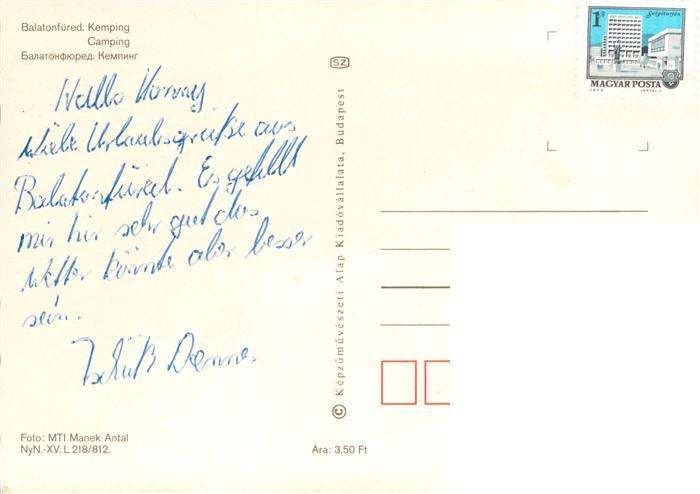 Balatonfüred. Kemping
Camping
Балатонфюред. Кемпинг
Hallo
viele Urlaubsgrüße aus
Balatonfüred. Es gefällt
mir hir sehr gut das
Wetter könnte aber besser
sein.
Tschüß
Foto: MTI Manek Antal
NyN.-XV. L 218/812.
Ára: 3,50 Ft
SZ
© Képzőművészeti Alap Kiadóvállalata, Budapest
1 Ft
Salgótarján
MAGYAR POSTA